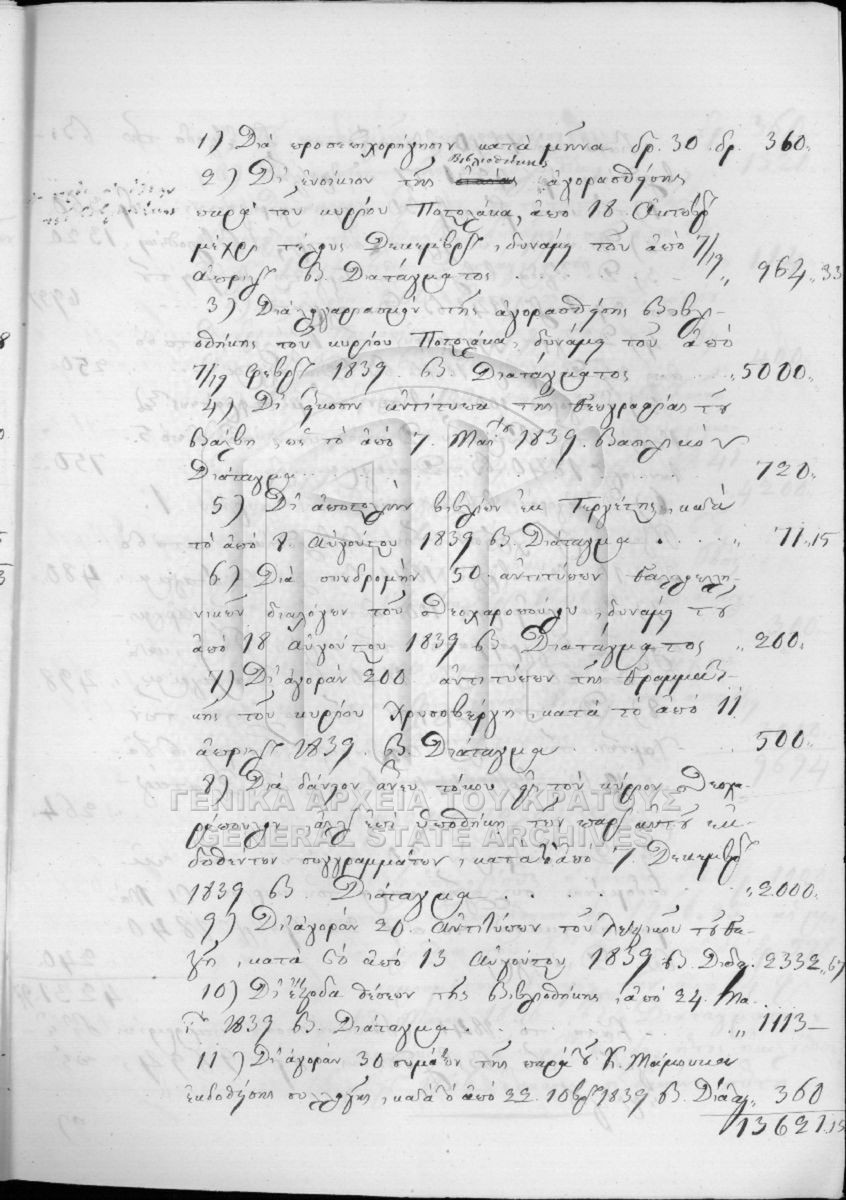 1) Διὰ προσεπιχορήγησιν κατὰ μῆνα δρ. 30. δρ. 360.
Βιβλιοθήκης
2) Δι' ἐνοίκιον τῆς ἀγορασθείσης
παρὰ τοῦ κυρίου Ποτολάκα, ἀπὸ 18 Ὀκτωβρ
μέχρι τέλους Δεκεμβρ, δυνάμει τοῦ ἀπὸ 7/19
Ἀπριλ Β. Διατάγματος . . . . . . . „ 964„33
3) Διὰ λογαριασμὸν τῆς ἀγορασθείσης Βιβλι-
οθήκης τοῦ κυρίου Ποτολάκα, δυνάμει τοῦ ἀπὸ
7/19 Φεβρ 1839. Β. Διατάγματος . . . „ 5000„
4) Δι' ἀντίτυπα τῆς Γεωγραφίας τοῦ
Βάλβη, ὡς τὸ ἀπὸ 7. Μαΐου 1839. Βασιλικὸν
Διάταγμα . . . . . . . 720„
5) Δι' ἀποστολὴν βιβλίων ἐκ Τεργέστης, κατὰ
τὸ ἀπὸ 8. Αὐγούστου 1839 Β. Διάταγμα . . . . „ 71„15
6) Διὰ συνδρομὴν 50. ἀντιτύπων Γαλλοελλη-
νικῶν διαλόγων τοῦ Θεοχαροπούλου, δυνάμει τοῦ
ἀπὸ 18 Αὐγούστου 1839 Β. Διατάγματος „ 200„
7) Δι' ἀγορὰν 200 ἀντιτύπων τῆς Γραμματι-
κῆς τοῦ κυρίου Χρυσοβέργη, κατὰ τὸ ἀπὸ 11
Ἀπριλ 1839. Β. Διάταγμα . . . . . 500„
8) Διὰ δάνειον ἄνευ τόκου εἰς τὸν κύριον Θεοχα-
ρόπουλον ἀλλ' ἐπὶ ὑποθήκῃ τῶν παρ' αὐτοῦ ἐκ-
δοθέντων συγγραμμάτων, κατὰ τὸ ἀπὸ 7. Δεκεμβρ
1839 Β. Διάταγμα . . . . . . . „ 2000„
9) Δι' ἀγορὰν 20. ἀντιτύπων τοῦ Λεξικοῦ τοῦ Γα-
ζῆ, κατὰ τὸ ἀπὸ 13 Αὐγούστου 1839 Β. Διάτ. 2332„67
10) Δι' ἔξοδα θέσεων τῆς Βιβλιοθήκης, ἀπὸ 24. Μα-
ΐου 1839 Β. Διάταγμα . . . . . „ 1113—
11) Δι' ἀγορὰν 30 σωμάτων τῆς παρὰ τοῦ Κ. Μάμουκα
ἐκδοθείσης συλλογῆς, κατὰ τὸ ἀπὸ 22. 10βρ 1839 Β. Διάτ„ 360
13621„15
ΓΕΝΙΚΑ ΑΡΧΕΙΑ ΤΟΥ ΚΡΑΤΟΥΣ
GENERAL STATE ARCHIVES